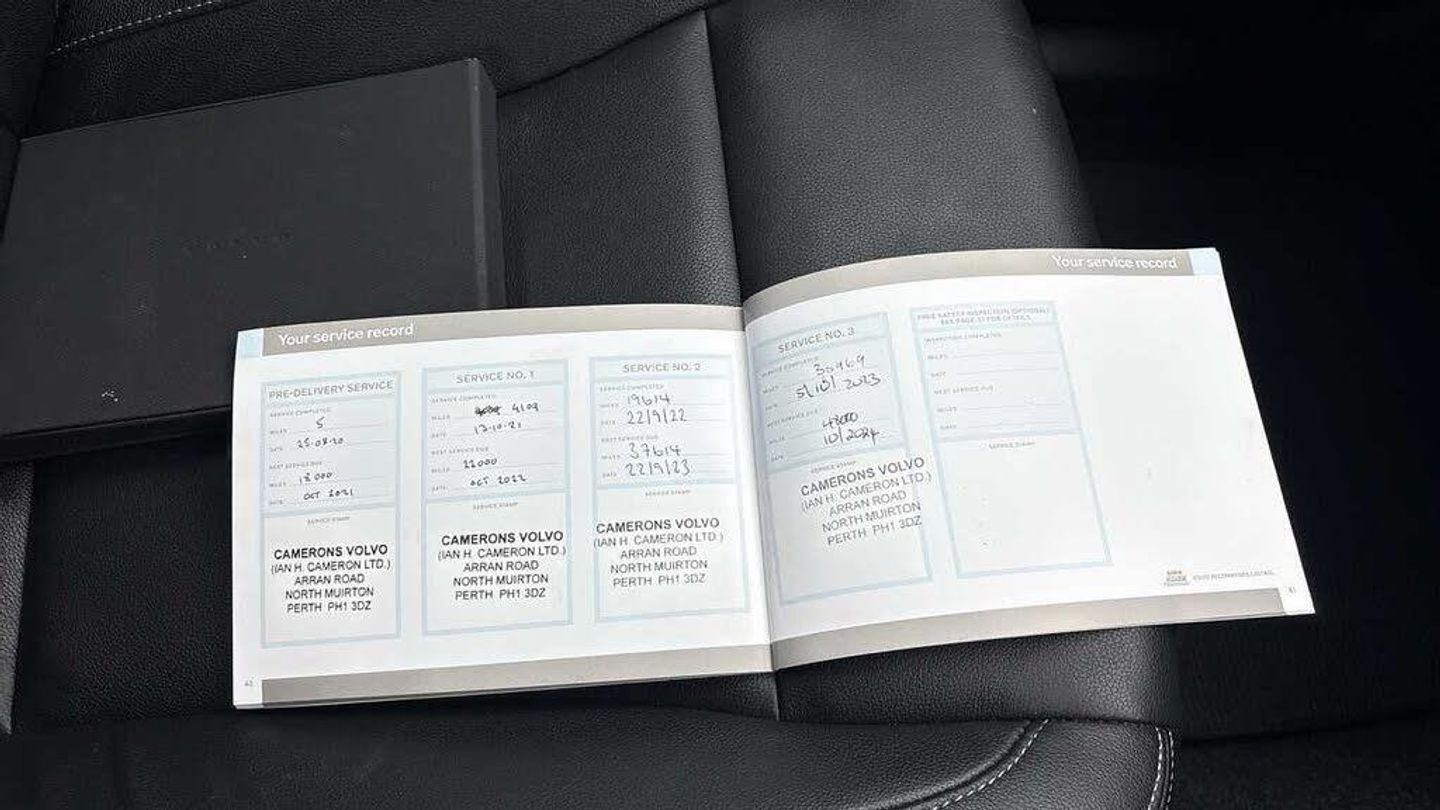 Your service record
PRE-DELIVERY SERVICE
SERVICE COMPLETED
MILES 5
DATE 25-08-20
NEXT SERVICE DUE
MILES 18000
DATE OCT 2021
SERVICE STAMP
CAMERONS VOLVO
(IAN H. CAMERON LTD.)
ARRAN ROAD
NORTH MUIRTON
PERTH PH1 3DZ
SERVICE NO. 1
SERVICE COMPLETED
MILES 4109
DATE 13-10-21
NEXT SERVICE DUE
MILES 22000
DATE OCT 2022
SERVICE STAMP
CAMERONS VOLVO
(IAN H. CAMERON LTD.)
ARRAN ROAD
NORTH MUIRTON
PERTH PH1 3DZ
SERVICE NO. 2
SERVICE COMPLETED
MILES 19614
DATE 22/9/22
NEXT SERVICE DUE
MILES 37614
DATE 22/9/23
SERVICE STAMP
CAMERONS VOLVO
(IAN H. CAMERON LTD.)
ARRAN ROAD
NORTH MUIRTON
PERTH PH1 3DZ
Your service record
SERVICE NO. 3
SERVICE COMPLETED
MILES
DATE 5/10/2023
NEXT SERVICE DUE
MILES 48000
DATE 10/2024
SERVICE STAMP
CAMERONS VOLVO
(IAN H. CAMERON LTD.)
ARRAN ROAD
NORTH MUIRTON
PERTH PH1 3DZ
FREE SAFETY INSPECTION (OPTIONAL)
SEE PAGE 37 FOR DETAILS
INSPECTION COMPLETED
MILES
DATE
NEXT SERVICE DUE
MILES
DATE
SERVICE STAMP